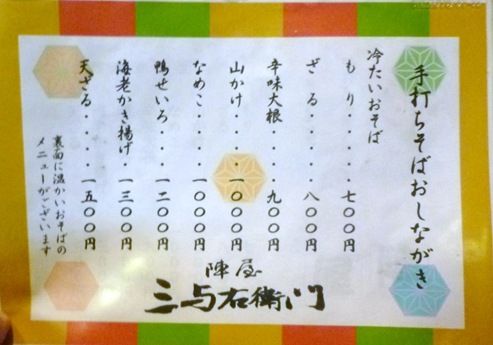 手打ちそばおしながき
冷たいおそば
もり・・・・・七〇〇円
ざる・・・・・八〇〇円
辛味大根・・・・九〇〇円
山かけ・・・・一〇〇〇円
なめこ・・・・一〇〇〇円
鴨せいろ・・・一二〇〇円
海老かき揚げ・一三〇〇円
天ざる・・・・一五〇〇円
裏面に温かいおそばの
メニューがございます
陣屋
三与右衛門